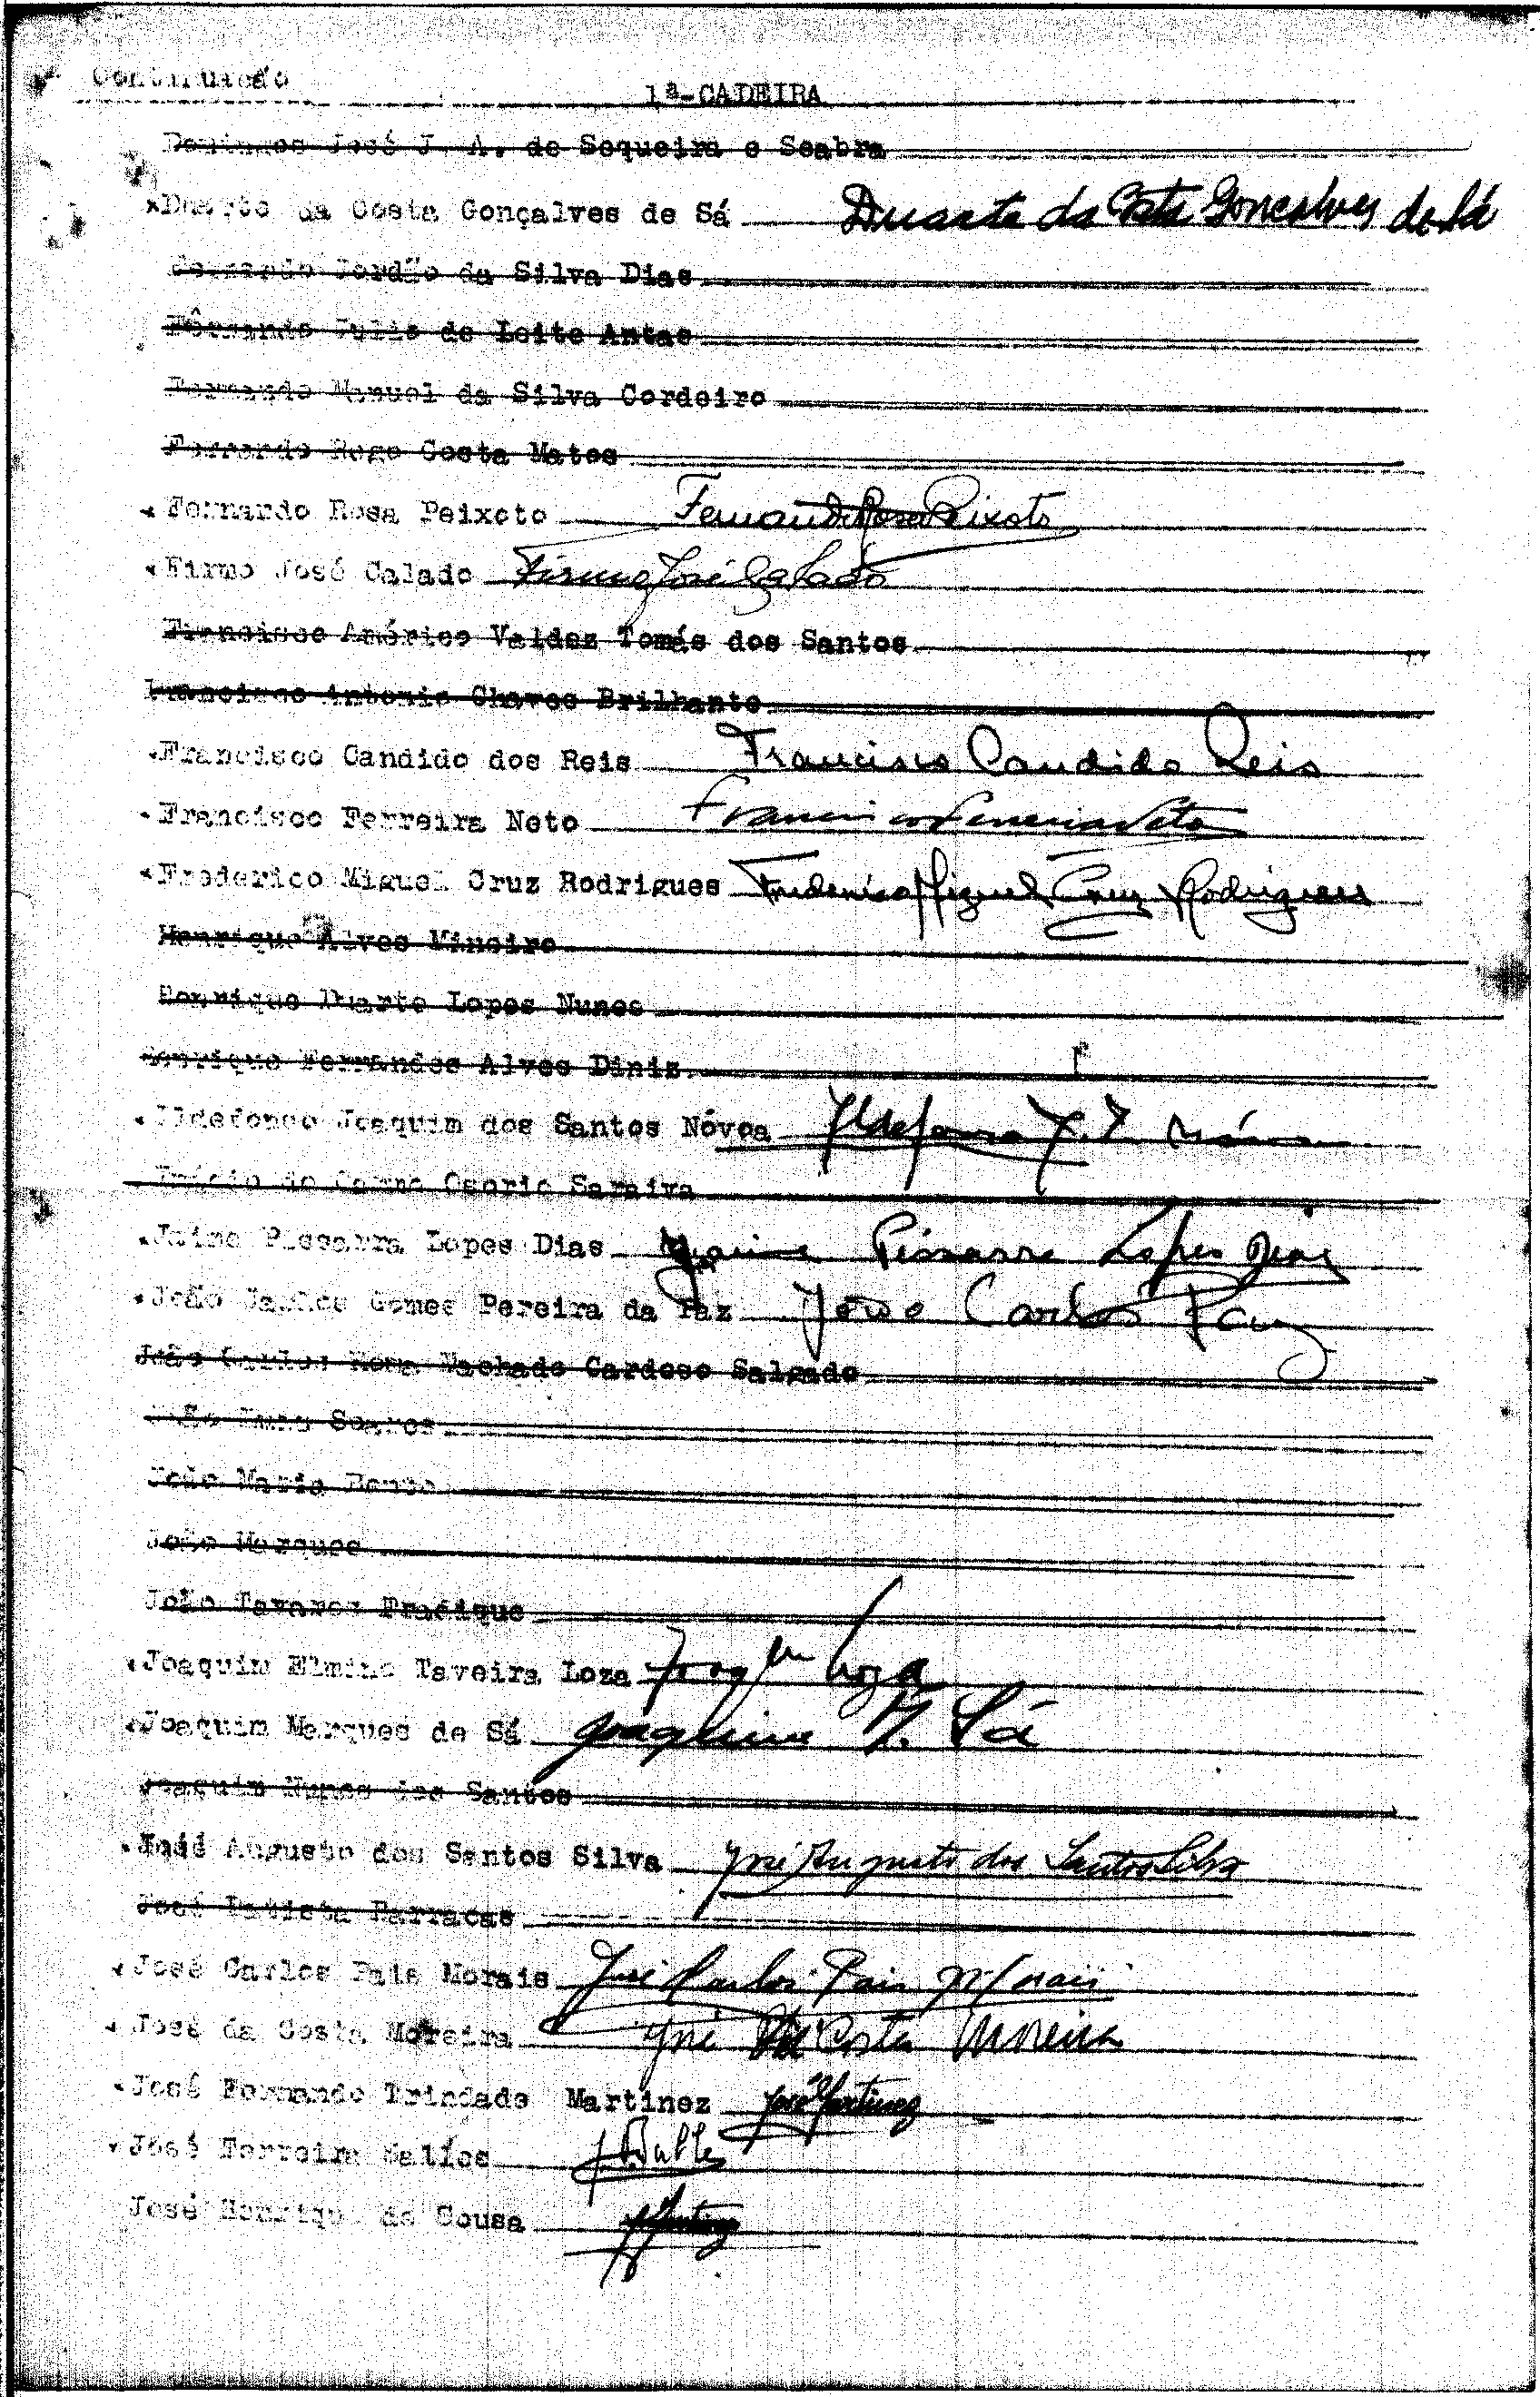 Continuação
1ª-CADEIRA
Domingos José J. A. de Sequeira e Seabra
Duarte da Costa Gonçalves de Sá Duarte da Costa Gonçalves de Sá
Fernando Jordão da Silva Dias
Fernando Julio de Leite Antas
Fernando Manuel da Silva Cordeiro
Fernando Rego Costa Matos
Fernando Rosa Peixoto Fernando Rosa Peixoto
Firmo José Calado Firmo José Calado
Francisco Américo Valdez Tomás dos Santos
Francisco Antonio Chaves Brilhante
Francisco Candido dos Reis Francisco Candido Reis
Francisco Ferreira Neto Francisco Ferreira Neto
Frederico Miguel Cruz Rodrigues Frederico Miguel Cruz Rodrigues
Henrique Alves Mineiro
Henrique Duarte Lopes Nunes
Henrique Fernandes Alves Diniz
Ildefonso Joaquim dos Santos Nóvoa Ildefonso J. S. Nóvoa
do Carmo Osorio Saraiva
Jaime Pissarra Lopes Dias Jaime Pissarra Lopes Dias
João Gomes Pereira da Paz João Carlos Paz
João Carlos Machado Cardoso Salgado
João Soares
João Maria
João Marques
João Tavares Fradique
Joaquim Elmino Taveira Loza Joaqm Loza
Joaquim Marques de Sá Joaquim M. Sá
Joaquim Nunes dos Santos
José Augusto dos Santos Silva José Augusto dos Santos Silva
José Batista Farracas
José Carlos Pais Morais José Carlos Pais Morais
José da Costa Moreira José da Costa Moreira
José Fernando Trindade Martinez José Martinez
José Ferreira
José Henrique de Sousa